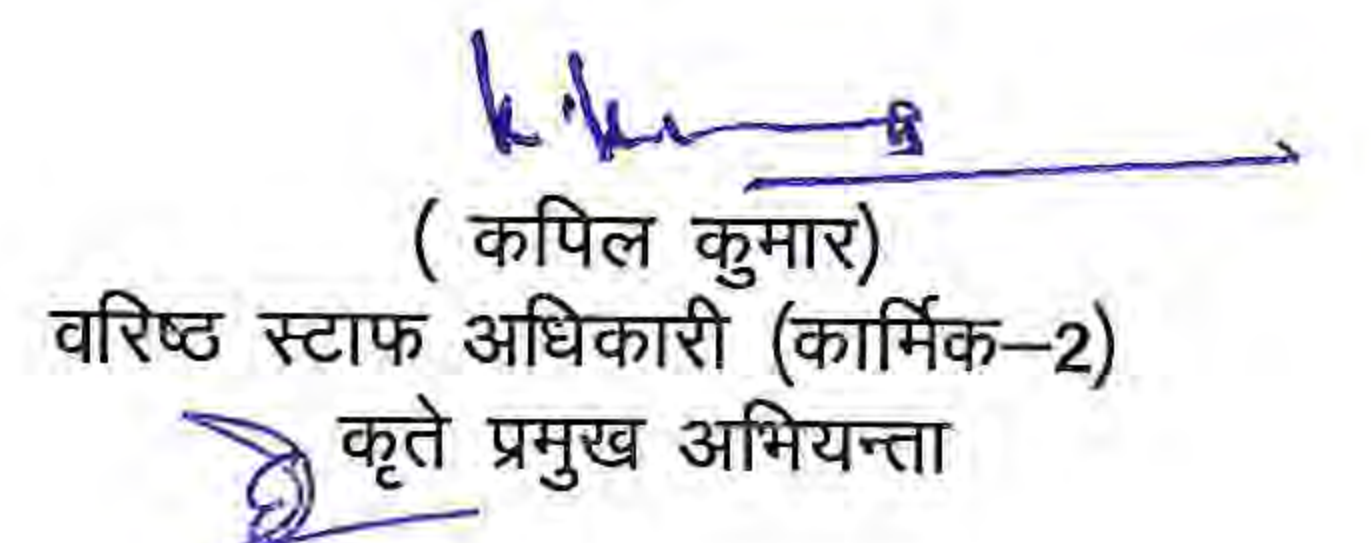 ( कपिल कुमार)
वरिष्ठ स्टाफ अधिकारी (कार्मिक–2)
कृते प्रमुख अभियन्ता